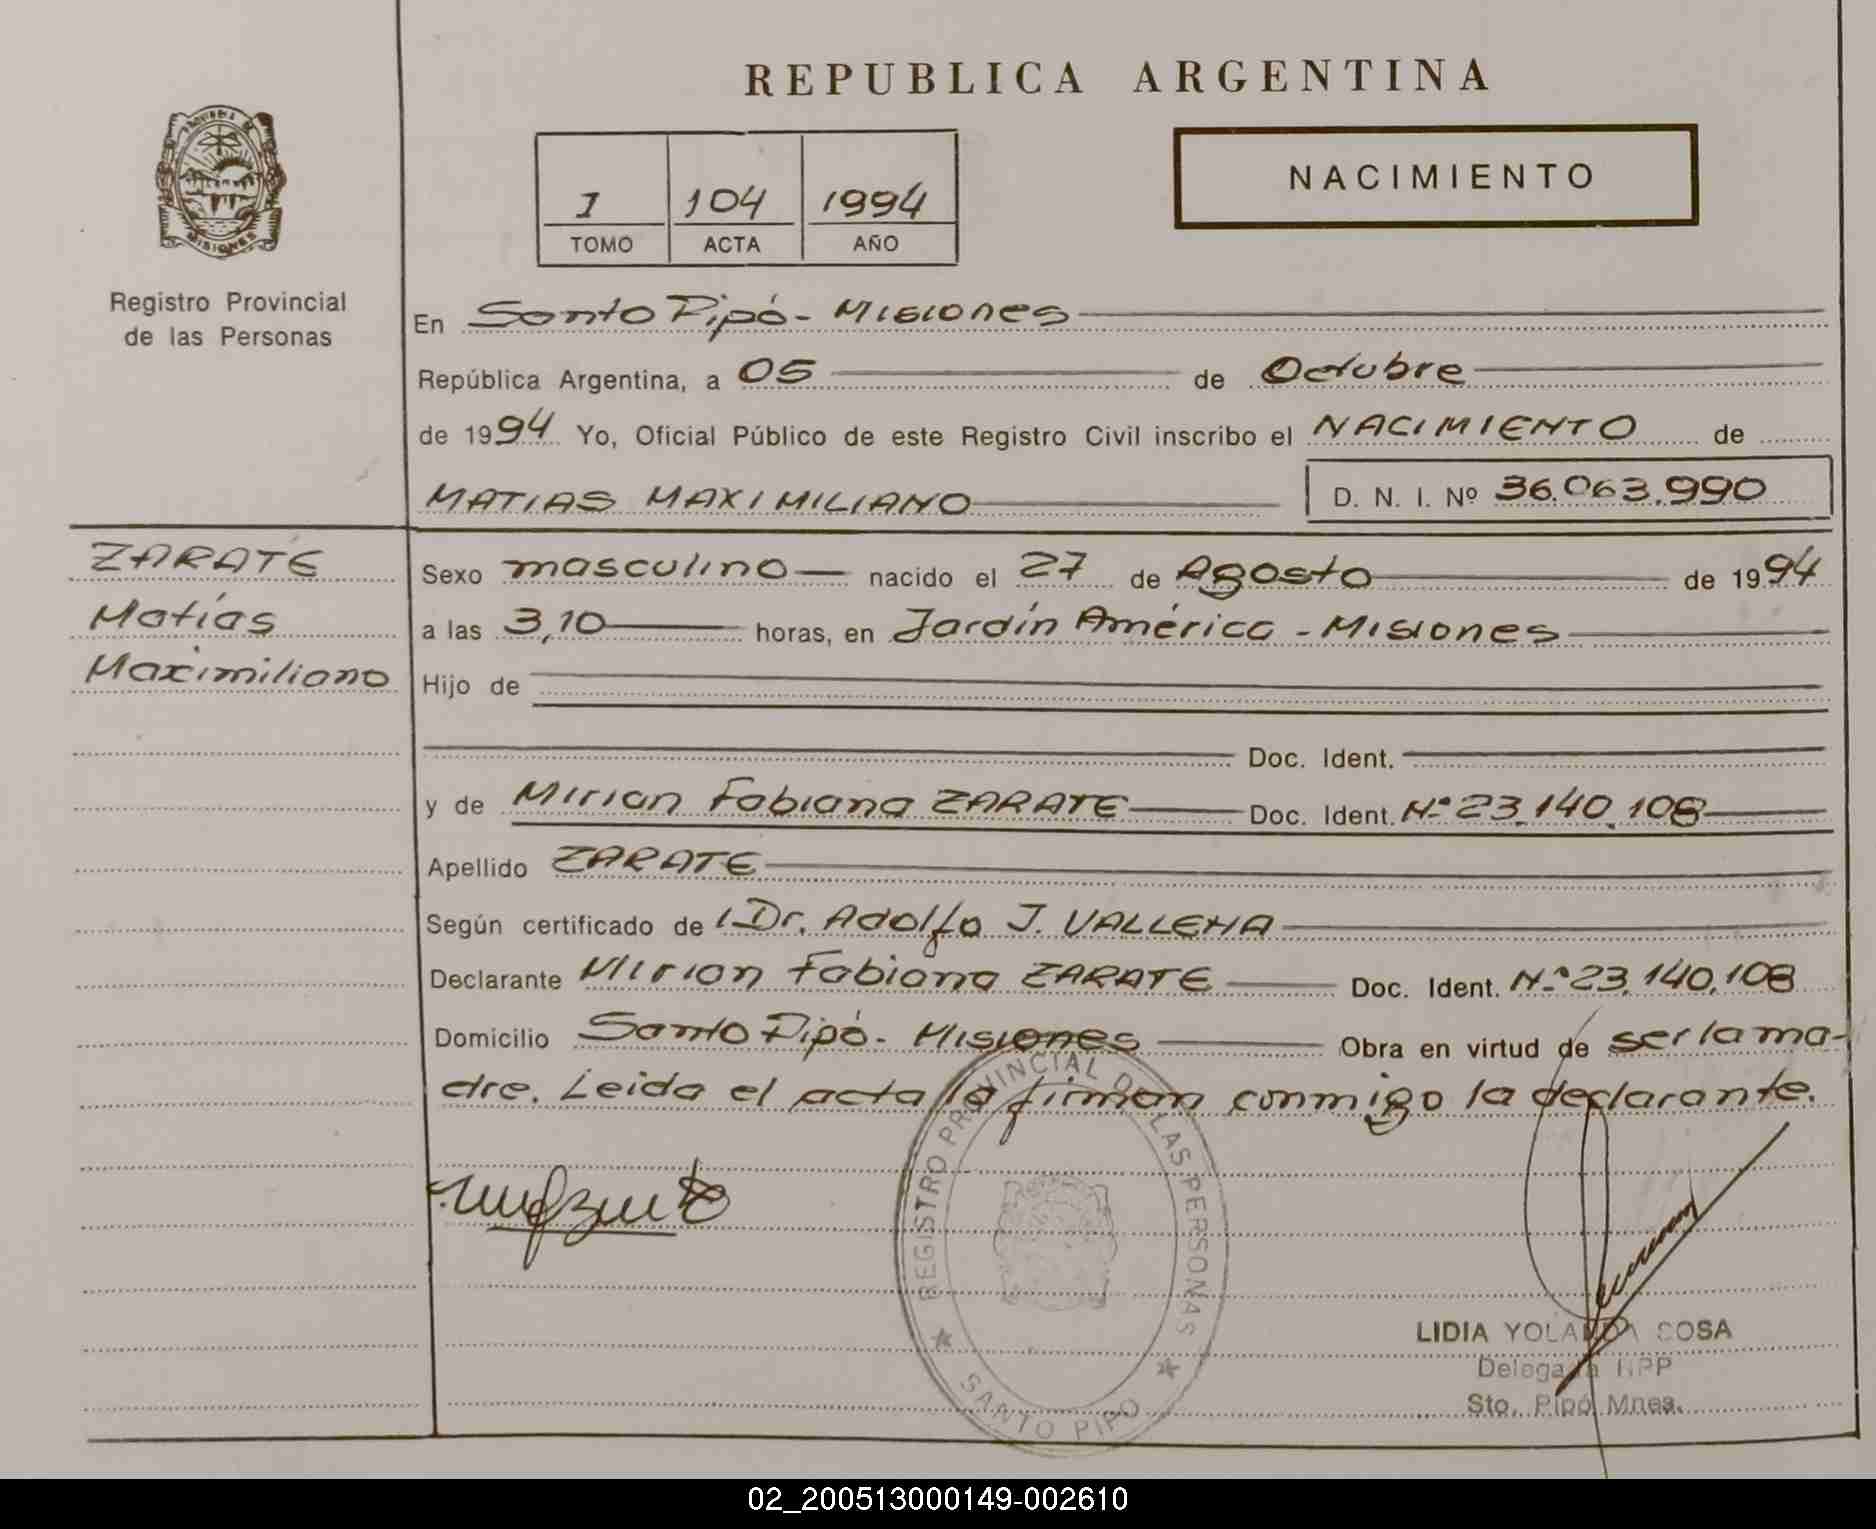 REPUBLICA ARGENTINA
PROVINCIA DE
MISIONES
Registro Provincial
de las Personas
1 104 1994
TOMO ACTA AÑO
NACIMIENTO
En Santo Pipó - Misiones
República Argentina, a 05 de Octubre
de 1994 Yo, Oficial Público de este Registro Civil inscribo el NACIMIENTO de
MATIAS MAXIMILIANO D. N. I. Nº 36.063.990
ZARATE
Matías
Maximiliano
Sexo masculino nacido el 27 de Agosto de 1994
a las 3,10 horas, en Jardín América - Misiones
Hijo de
Doc. Ident.
y de Mirian Fabiana ZARATE Doc. Ident. Nº 23.140.108
Apellido ZARATE
Según certificado de Dr. Adolfo J.
Declarante Mirian Fabiana ZARATE Doc. Ident. Nº 23.140.108
Domicilio Santo Pipó - Misiones Obra en virtud de ser la ma-
dre. Leida el acta la firman conmigo la declarante.
REGISTRO PROVINCIAL DE LAS PERSONAS
SANTO PIPO
LIDIA YOLANDA COSA
Delegada RPP
Sto. Pipó Mnes.
02_200513000149-002610